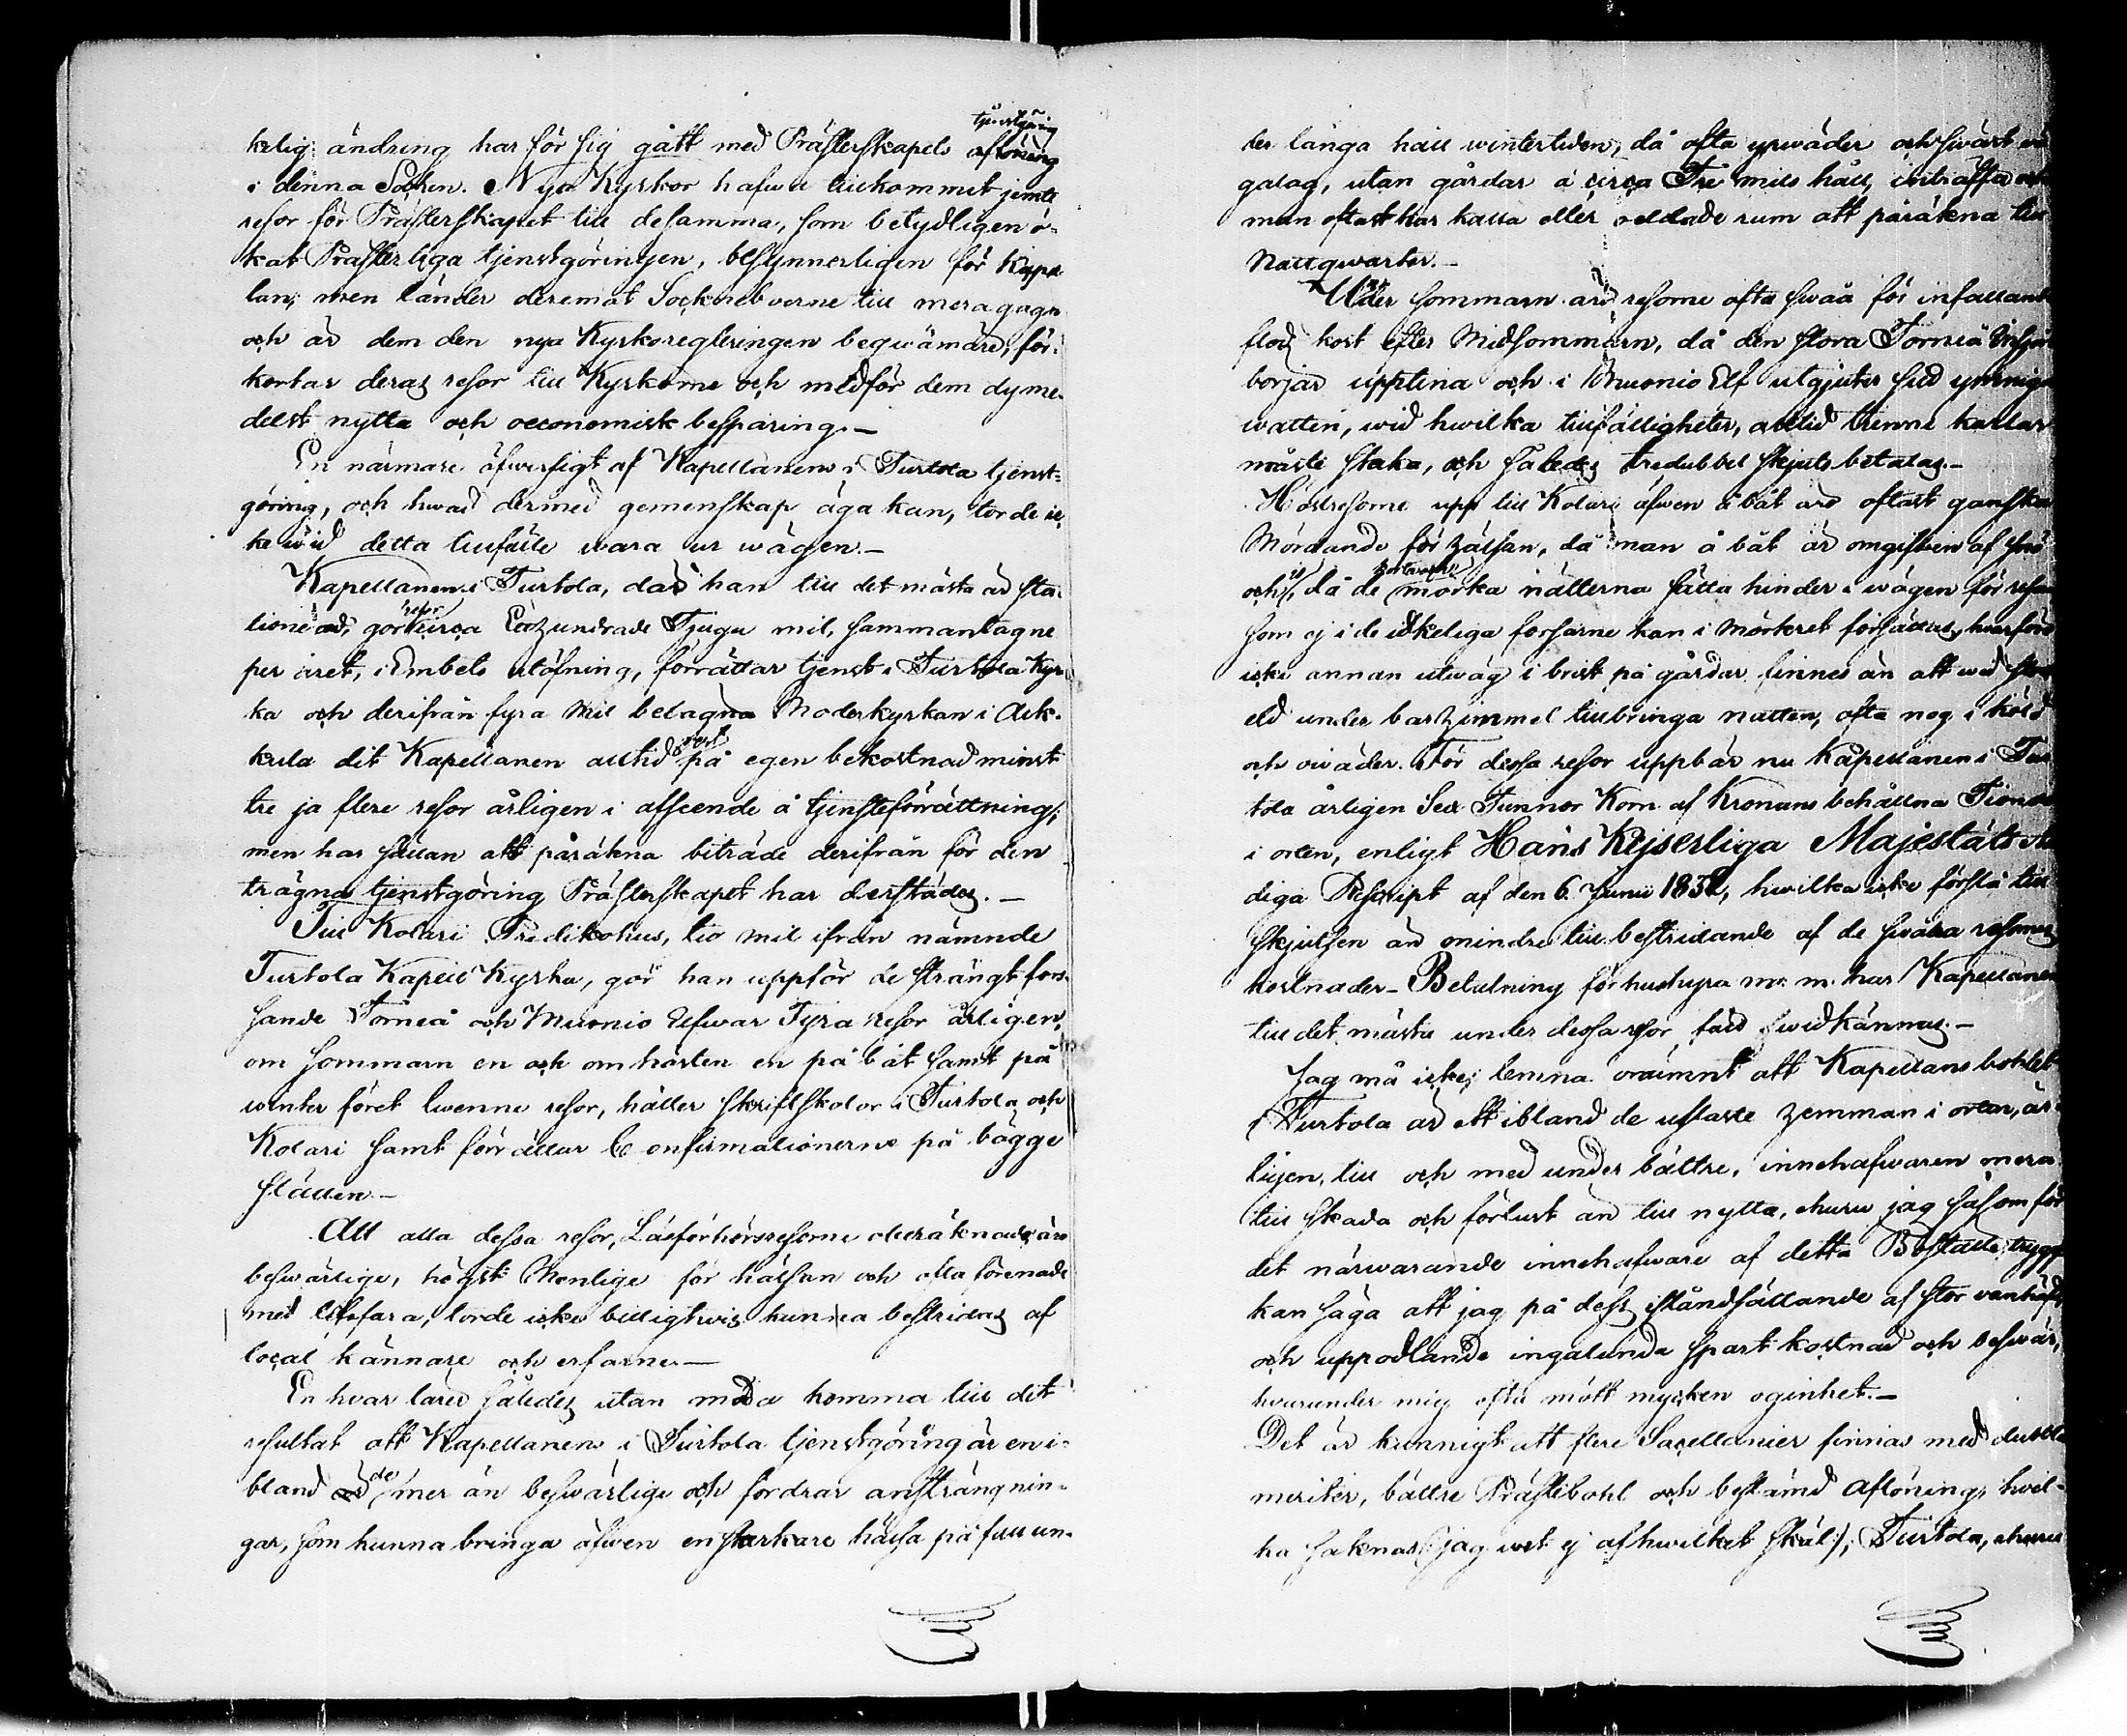 kelig ändring har för sig gått med Prästerskapets tjenstgöring aflöning
i denna Socken. Nya Kyrkor hafwa tillkommit jemte
resor för Prästerskapet till desamma, som betydligen ö-
kat Prästerliga tjenstgöringen, besynnerligen för Kapel
lan, men länder deremot Sockneboerne till mera gagn
och är dem den nya Kyrkoregleringen beqwämare, för-
kortar deras resor till Kyrkorne och medför dem dyme-
delst nytta och oeconomisk besparing.—
En närmare öfwersigt af Kapellanens i Turtola tjenst-
göring, och hwad dermed gemenskap äga kan, torde ic-
ke wid detta tillfälle wara ur wägen.—
Kapellanen i Turtola, där han till det mästa är sta-
tionerad, gör resor circa Etthundrade Tjugu mil, sammantagne
per året, i Embets utöfning, förrättar tjenst i Turtola Kyr-
ka och derifrån fyra mil belägna Moderkyrkan i Alk-
kula dit Kapellanen alltid gör på egen bekostnad minst
tre ja flere resor årligen i afseende å tjensteförrättning;
men har sällan att påräkna biträde derifrån för den
trägna tjenstgöring Prästerskapet har derstädes.—
Till Kolari Predikohus, tio mil ifrån nämnde
Turtola Kapell Kyrka, gör han uppför de strängt fors-
sande Torneå och Muonio Elfwar Fyra resor årligen,
om sommarn en och om hösten en på båt samt på
winter föret twenne resor, håller skriftskolor i Turtola och
Kolari samt förrättar Confirmationerne på bägge
ställen.—
Att alla dessa resor, Läsförhörsresorne oberäknade, äro
beswärlige, högst menlige för hälsan och ofta förenade
med lifsfara, torde icke billigtwis kunna bestridas af
local kännare och erfarne.—
En hvar lärer således utan möda komma till det
resultat att Kapellanens i Turtola tjenstgöring är en i-
bland de mer än beswärlige och fordrar ansträngnin-
gar, som kunna bringa äfwen en starkare hälsa på fall un-
der långa håll wintertiden, då ofta yrwäder och swårt
galag, utan gårdar å circa Tre mils håll, inträffa och
man oftast har kalla eller oeldade rum att påräkna till
Nattqwarter.—
Under sommarn äro resorne ofta swåra för infallande
flod kort efter Midsommarn, då den stora Torneå Insjön
börjar upptina och i Muonio Elf utgjuter sitt ymniga
watten, wid hwilka tillfälligheter, alltid trenne karlar
måste staka, och således tredubbel skjuts betalas.—
Höstresorne upp till Kolari äfwen å båt äro oftast ganska
Mördande för hälsan, då man å båt är omgifwen af snö
och is, då de mörka nätterna sätta hinder i wägen för resan
som ej i de idkeliga forsarne kan i mörkret fortsättas, hwarföre
icke annan utwäg i brist på gårdar finnes än att wid
eld under bar himmel tillbringa natten, ofta nog i köld
och owäder. För dessa resor uppbär nu Kapellanen i Tur
tola årligen Sex Tunnor Korn af Kronans behållna Tionde
i orten, enligt Hans Kejserliga Majestäts Nå
diga Rescript af den 6 Junii 1832, hwilka icke förslå till
skjutsen än mindre till bestridande af de swåra resornes
kostnader. Betalning för hushyra m. m. har Kapellanen
till det mästa under dessa resor fått widkännas.—
Jag må icke lemna onämnt att Kapellans bohlet
i Turtola är ett ibland de uslaste hemman i orten, år-
ligen, till och med under bättre, innehafwaren mera
till skada och förlust än till nytta, ehuru jag såsom för
det närwarande innehafware af detta Boställe, tryggt
kan säga att jag på dess iståndsättande af stor wanhäfd,
och uppodlande ingalunda spart kostnad och beswär,
hwarunder mig ofta mött mycken oginhet.—
Det är kunnigt att flere Sacellanier finnas med dubbla
meriter, bättre Prästebohl och bestämd aflöning, hwil-
ka saknas (:jag wet ej af hwilket skäl:), Turtola, ehuru